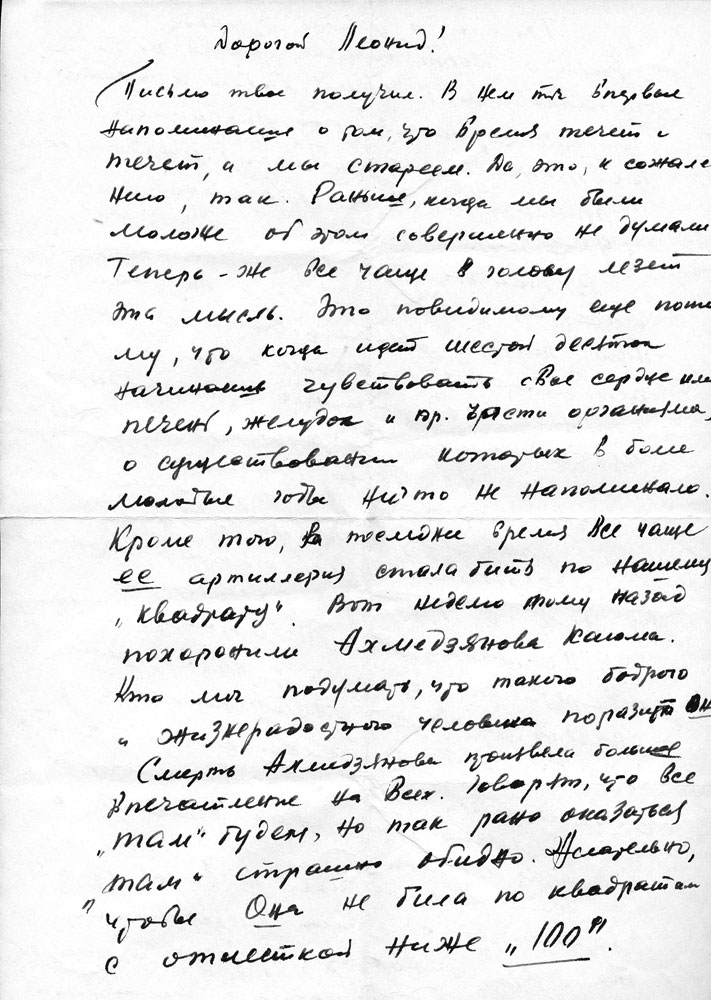 Дорогой Леонид!
Письмо твое получил. В нем ты впервые
напоминаешь о том, что время течет и
течет, и мы стареем. Да, это, к сожале
нию, так. Раньше, когда мы были
моложе об этом совершенно не думали
Теперь-же все чаще в голову лезет
эта мысль. Это повидимому еще пото
му, что когда идет шестой десяток
начинаешь чувствовать свое сердце или
печень, желудок и пр. части организма,
о существовании которых в более
молодые годы ничто не напоминало.
Кроме того, за последнее время все чаще
ее артиллерия стала бить по нашему
„квадрату“. Вот неделю тому назад
похоронили Ахмедзянова Каюма.
Кто мог подумать, что такого бодрого
и жизнерадостного человека поразит он
Смерть Ахмедзянова произвела большое
впечатление на всех. Говорят, что все
„там“ будем, но так рано оказаться
„там“ страшно обидно. Желательно,
чтобы Она не била по квадратам
с отметкой ниже „100“.